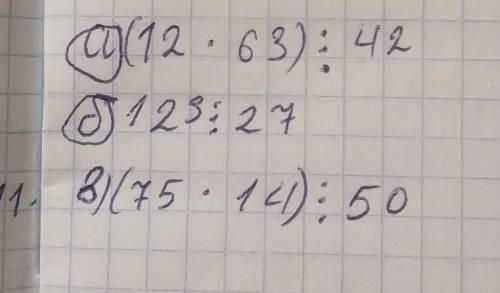 а) (12 · 63) ⋮ 42
б) 12³ ⋮ 27
11. в) (75 · 14) ⋮ 50